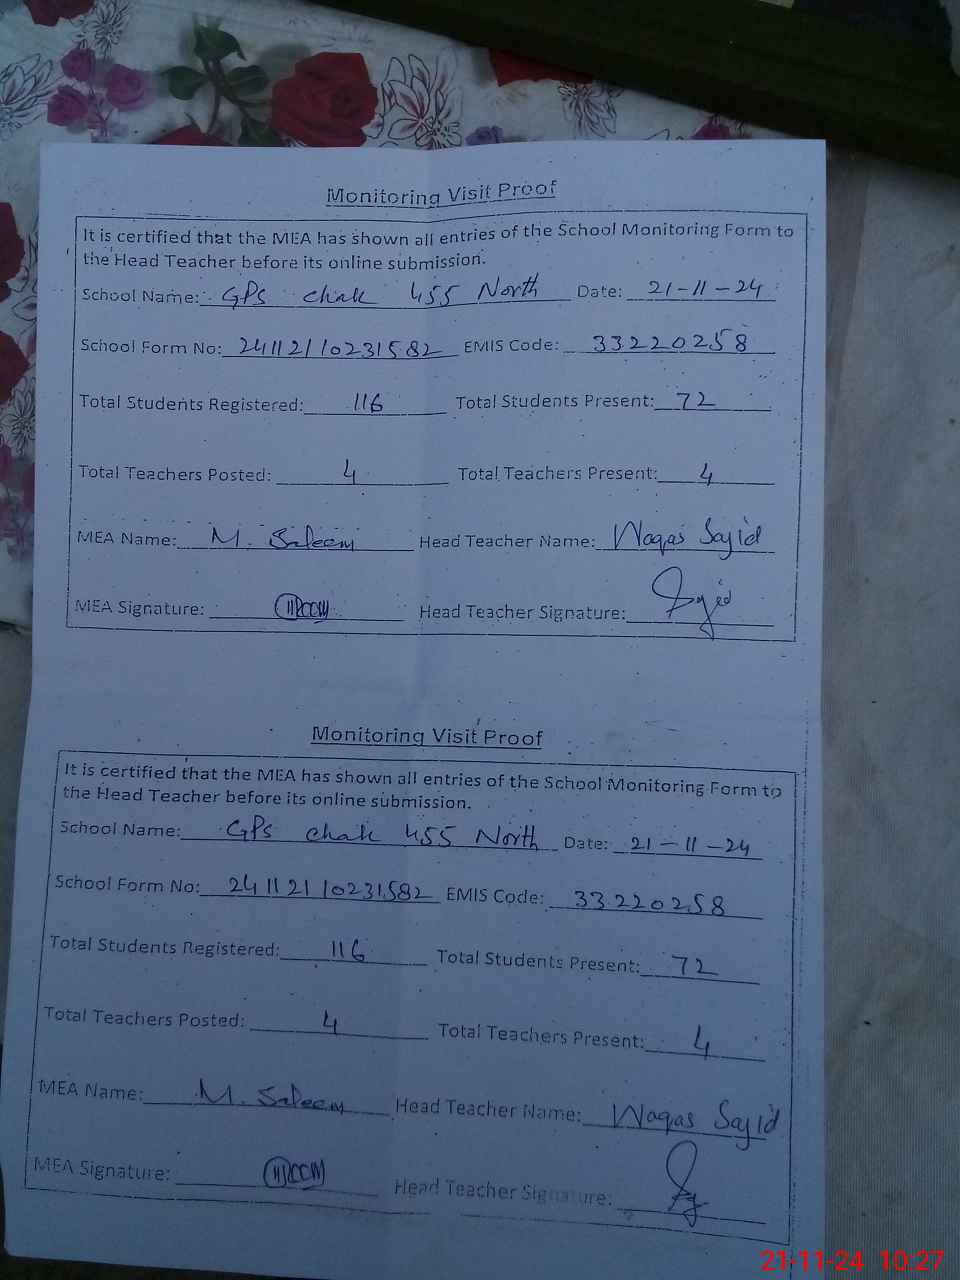 Monitoring Visit Proof
It is certified that the MEA has shown all entries of the School Monitoring Form to
the Head Teacher before its online submission.
School Name: GPS chak 455 North Date: 21-11-24
School Form No: 24112110231582 EMIS Code: 33220258
Total Students Registered: 116 Total Students Present: 72
Total Teachers Posted: 4 Total Teachers Present: 4
MEA Name: M. Saleem Head Teacher Name: Waqas Sajid
MEA Signature: Head Teacher Signature: Sajid
Monitoring Visit Proof
It is certified that the MEA has shown all entries of the School Monitoring Form to
the Head Teacher before its online submission.
School Name: GPS chak 455 North Date: 21-11-24
School Form No: 24112110231582 EMIS Code: 33220258
Total Students Registered: 116 Total Students Present: 72
Total Teachers Posted: 4 Total Teachers Present: 4
MEA Name: M. Saleem Head Teacher Name: Waqas Sajid
MEA Signature: Head Teacher Signature:
21-11-24 10:27